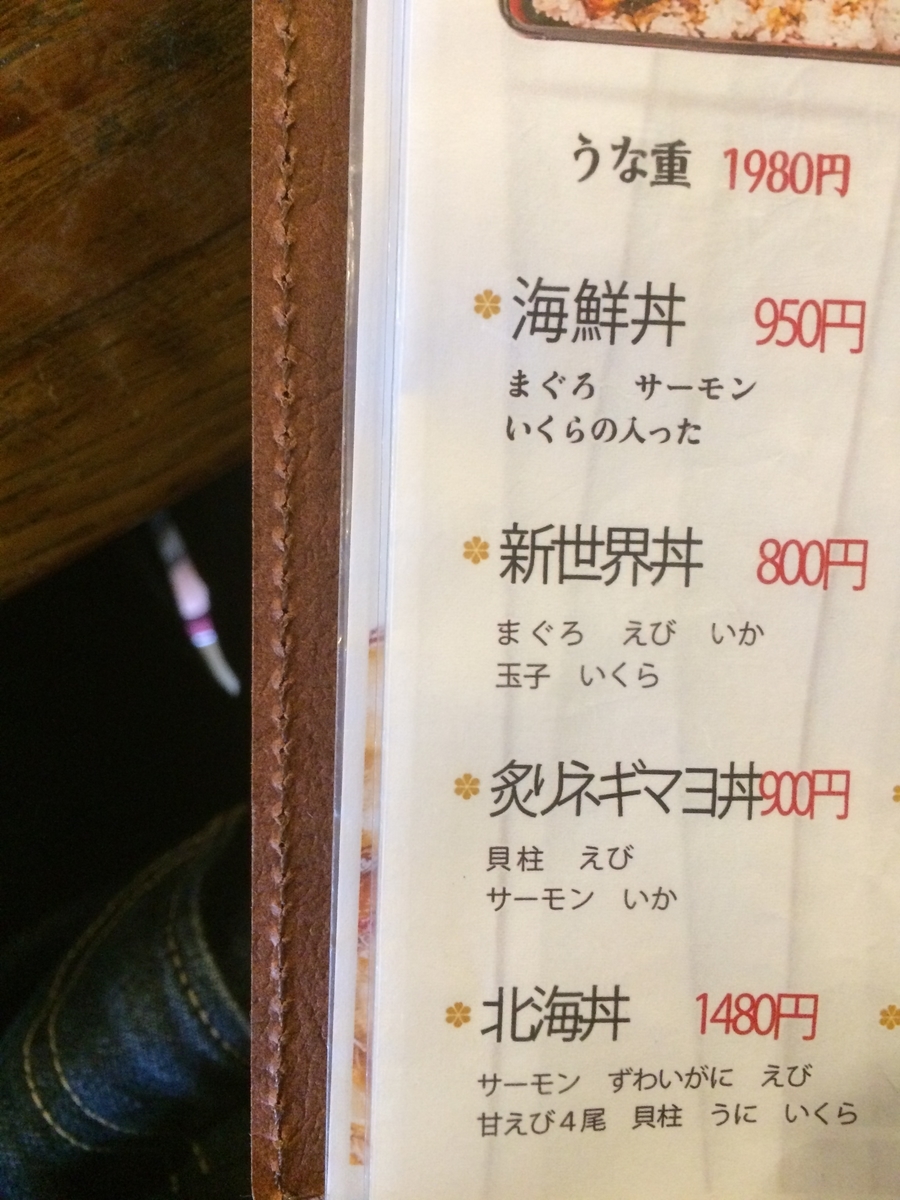 うな重 1980円
海鮮丼 950円
まぐろ サーモン
いくらの入った
新世界丼 800円
まぐろ えび いか
玉子 いくら
炙りネギマヨ丼900円
貝柱 えび
サーモン いか
北海丼 1480円
サーモン ずわいがに えび
甘えび4尾 貝柱 うに いくら